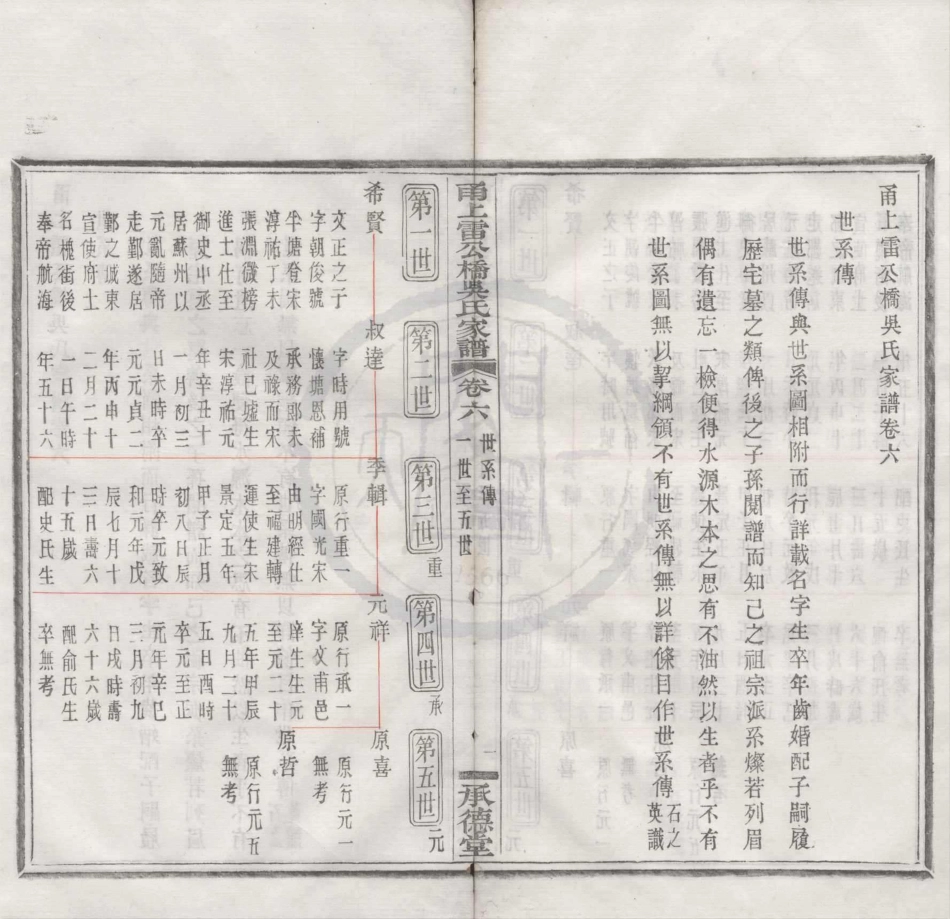 甬上雷公橋吳氏家譜卷六
世系傳
世系傳與世系圖相附而行詳載名字生卒年齒婚配子嗣履
歷宅墓之類俾後之子孫閱譜而知己之祖宗派系燦若列眉
偶有遺忘一檢便得水源木本之思有不油然以生者乎不有
世系圖無以挈綱領不有世系傳無以詳條目作世系傳
石之
英識
甬上雷公橋吳氏家譜
卷六
世系傳
一世至五世
一
承德堂
第一世
第二世
第三世
重
第四世
承
第五世
元
希賢
文正之子
字朝俊號
半塘登宋
淳祐丁未
張淵微榜
進士仕至
御史中丞
居蘇州以
元亂隨帝
走鄞遂居
鄞之城東
宣使府土
名槐街後
奉帝航海
叔達
字時用號
懷塘恩補
承務郎未
及祿而宋
社已墟生
宋淳祐元
年辛丑十
一月初三
日未時卒
元元貞二
年丙申十
二月二十
一日午時
年五十六
季輯
原行重一
字國光宋
由明經仕
至福建轉
運使生宋
景定五年
甲子正月
初八日辰
時卒元致
和元年戊
辰七月十
三日壽六
十五歲
配史氏生
元祥
原行承一
字文甫邑
庠生生元
至元二十
五年甲辰
九月二十
五日酉時
卒元至正
元年辛巳
三月初九
日戌時壽
六十六歲
配俞氏生
卒無考
原喜
原行元一
無考
原哲
原行元五
無考